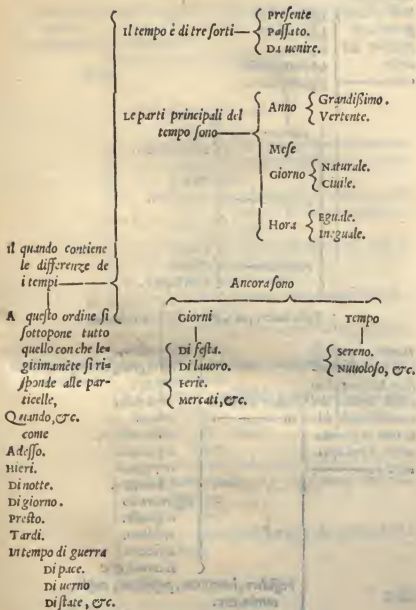 Il tempo è di tre sorti
Presente
Passato.
Da uenire.
Le parti principali del
tempo sono
Anno
Grandißimo.
Vertente.
Mese
Giorno
Naturale.
Ciuile.
Hora
Eguale.
Ineguale.
Il quando contiene
le differenze de
i tempi
A questo ordine si
sottopone tutto
quello con che le=
gitimamẽte si ri=
sponde alle par-
ticelle,
Quando, &c.
come
Adesso.
Hieri.
Di notte.
Di giorno.
Presto.
Tardi.
In tempo di guerra
Di pace.
Di uerno
Di state, &c.
Ancora sono
Giorni
Di festa.
Di lauoro.
Ferie.
Mercati, &c.
Tempo
Sereno.
Nuuoloso, &c.